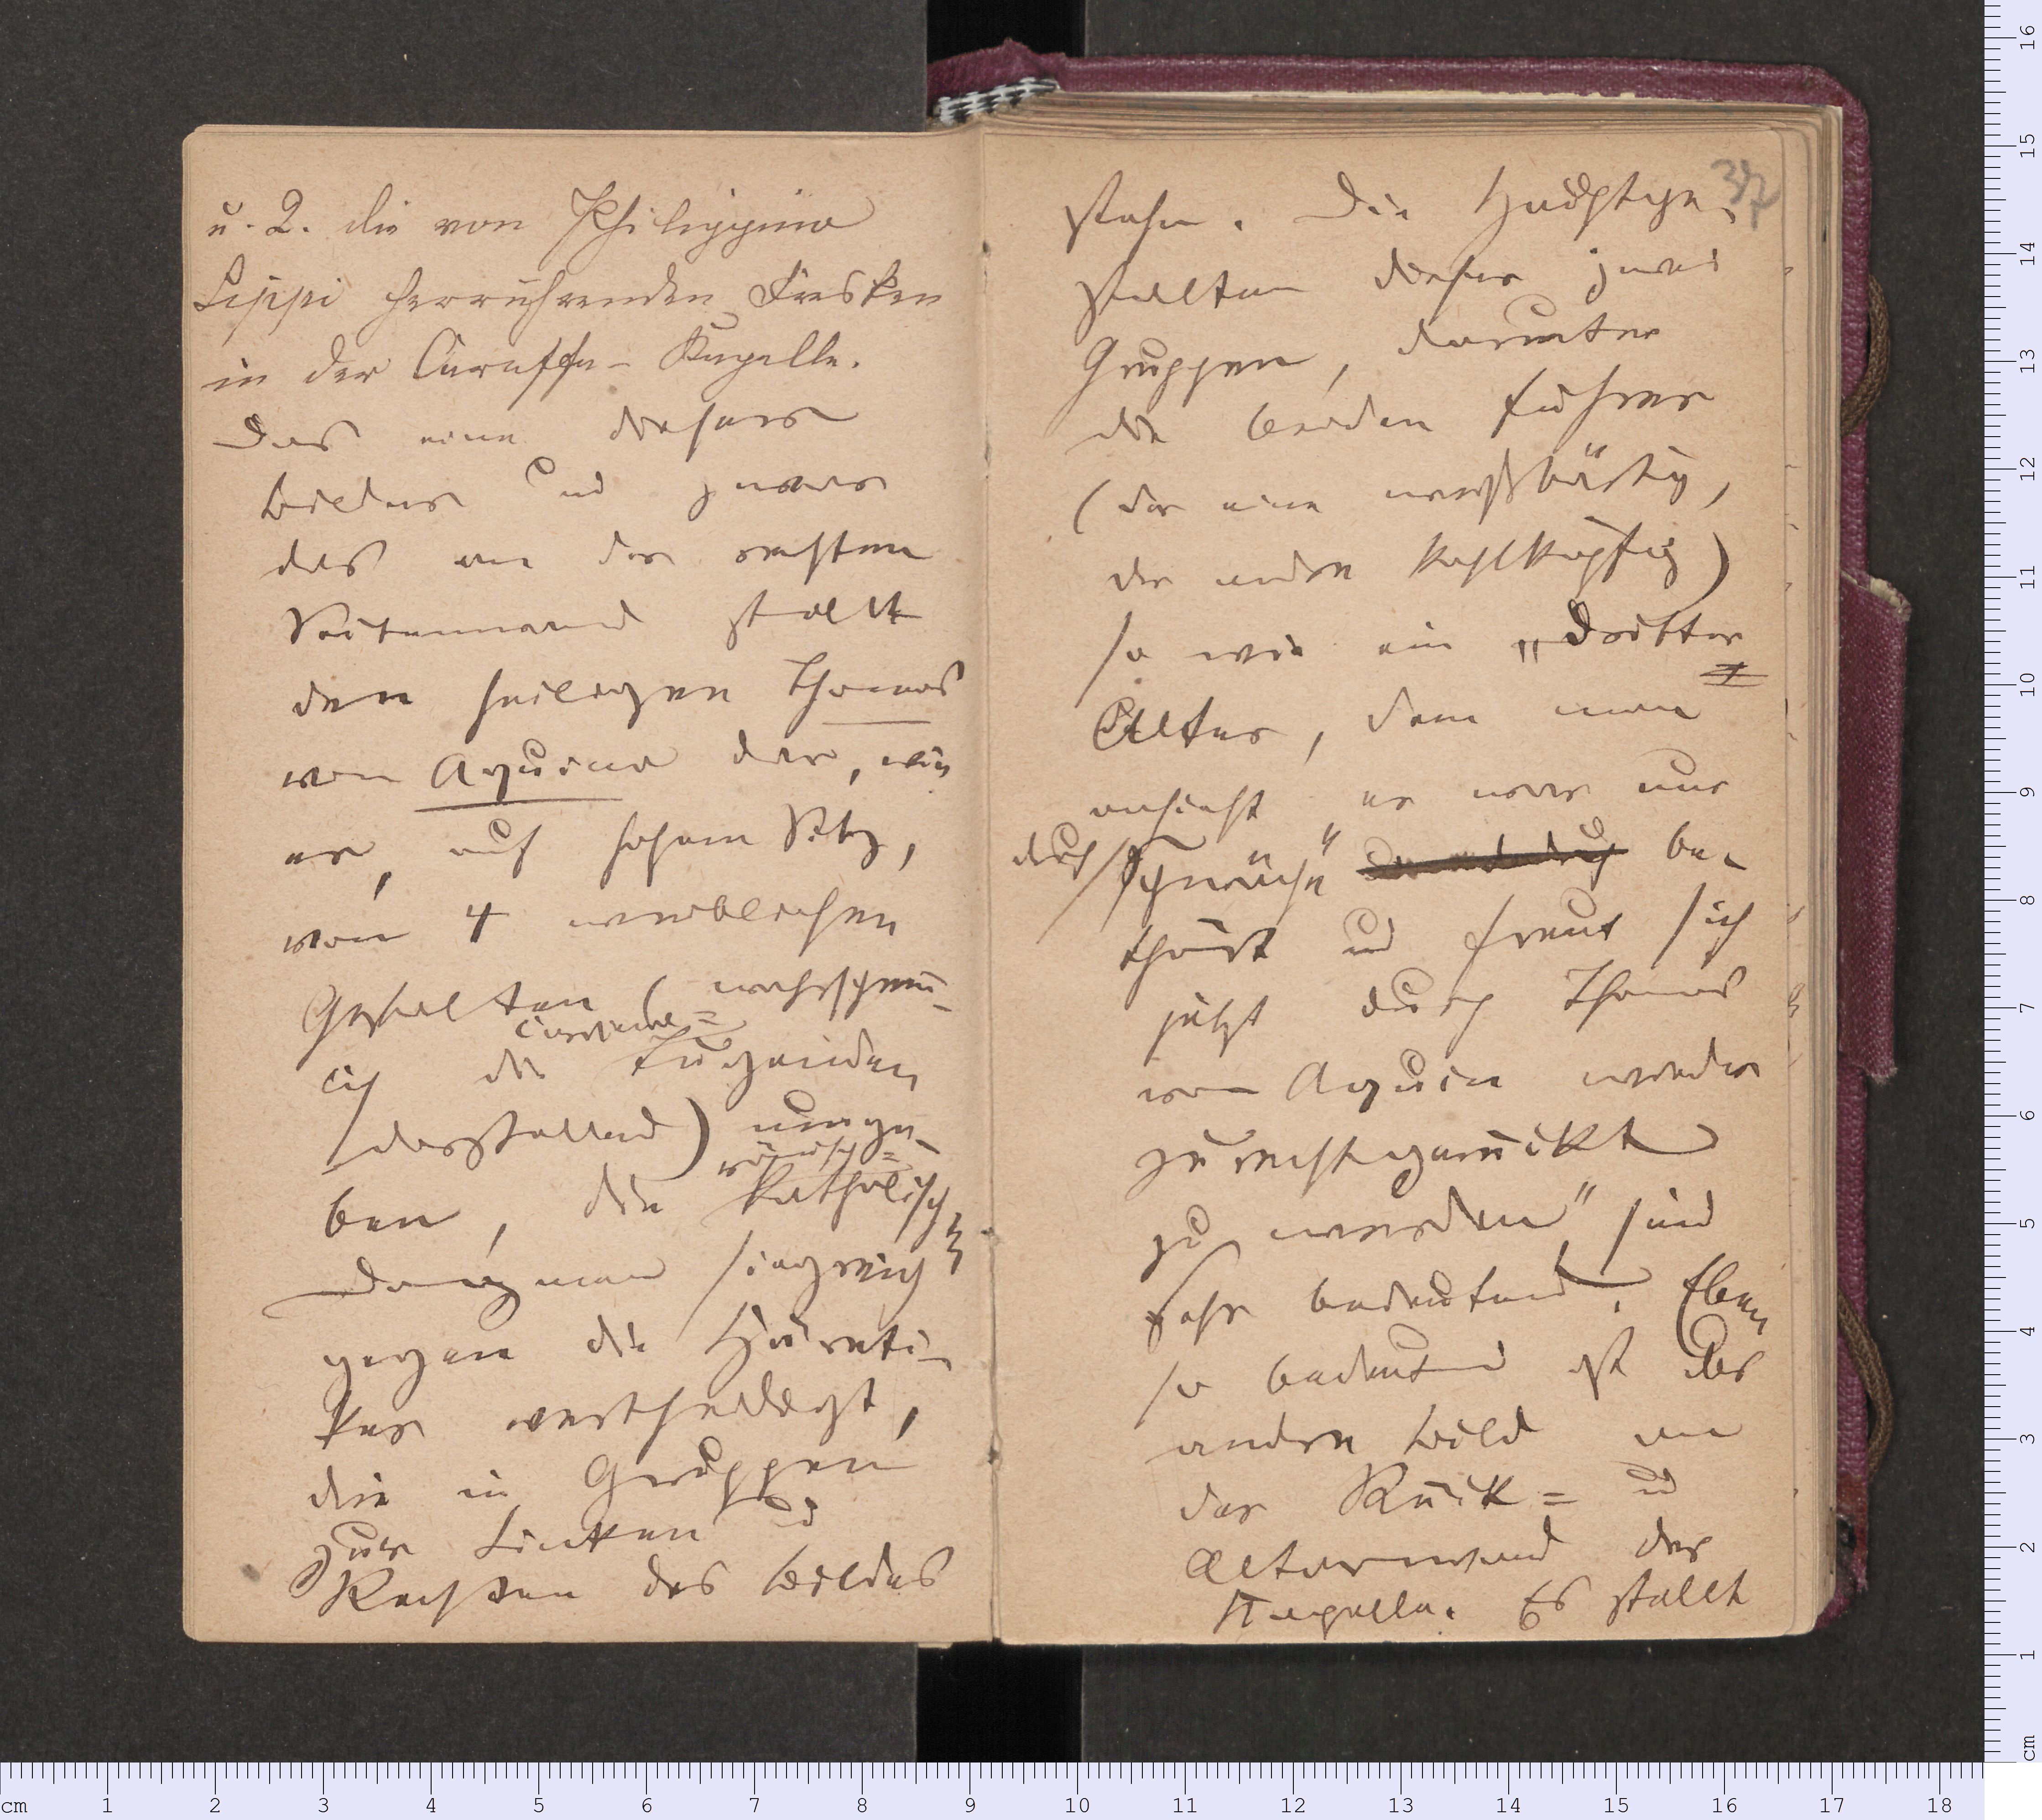 u. 2. die von Philippino
Lippi herrührenden Fresken
in der Caraffa-Kapelle.
Das eine dieser
Bilder und zwar
das an der rechten
Seitenwand stellt
den heiligen Thomas
von Aquino dar, wie
er, auf hohem Sitz,
von 4 weiblichen
Gestalten (wahrschein-
lich die Cardinal=
Tugenden
darstellend) umge-
ben, die römisch=
katholischen
Dogmen siegreich
gegen die Häreti-
ker vertheidigt,
die in Gruppen
zur Linken und
Rechten des Bildes
37
stehn. Die Hauptge-
stalten dieser zwei
Gruppen, darunter
die beiden Führer
(der eine weißbärtig,
der andre kahlköpfig)
so wie ein „dritter
Alter, dem man
ansieht er war nur
durch Sprüche" be-
thört und freut sich
jetzt durch Thomas
von Aquin wieder
zurechtgerückt
zu werden" sind
sehr bedeutend. Eben
so bedeutend ist das
andre Bild an
der Rück= und
Altarwand der
Kapelle. Es stellt